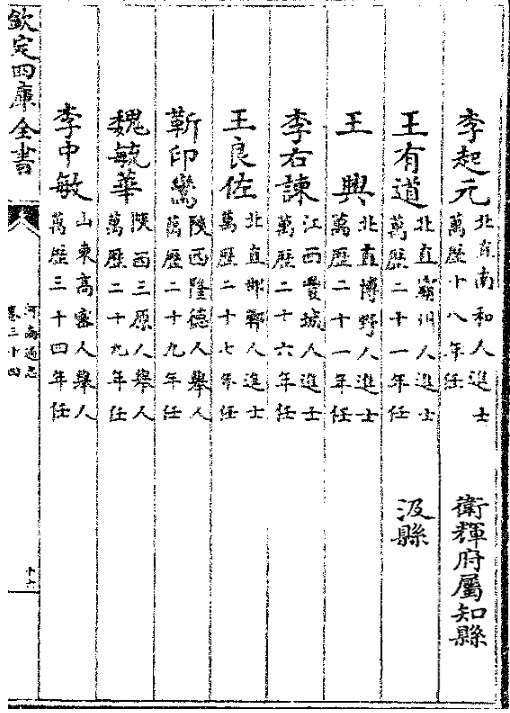 李起元 北直南和人進士
萬歷十八年任
衛輝府屬知縣
王有道 北直霸州人進士
萬歷二十一年任
汲縣
王興 北直博野人進士
萬歷二十一年任
李右諫 江西豐城人進士
萬歷二十六年任
王良佐 北直邯鄲人進士
萬歷二十七年任
靳印鸞 陜西隆德人舉人
萬歷二十九年任
魏毓華 陜西三原人舉人
萬歷二十九年任
李中敏 山東高密人舉人
萬歷三十四年任
欽定四庫全書
河南通志
卷三十四
十六